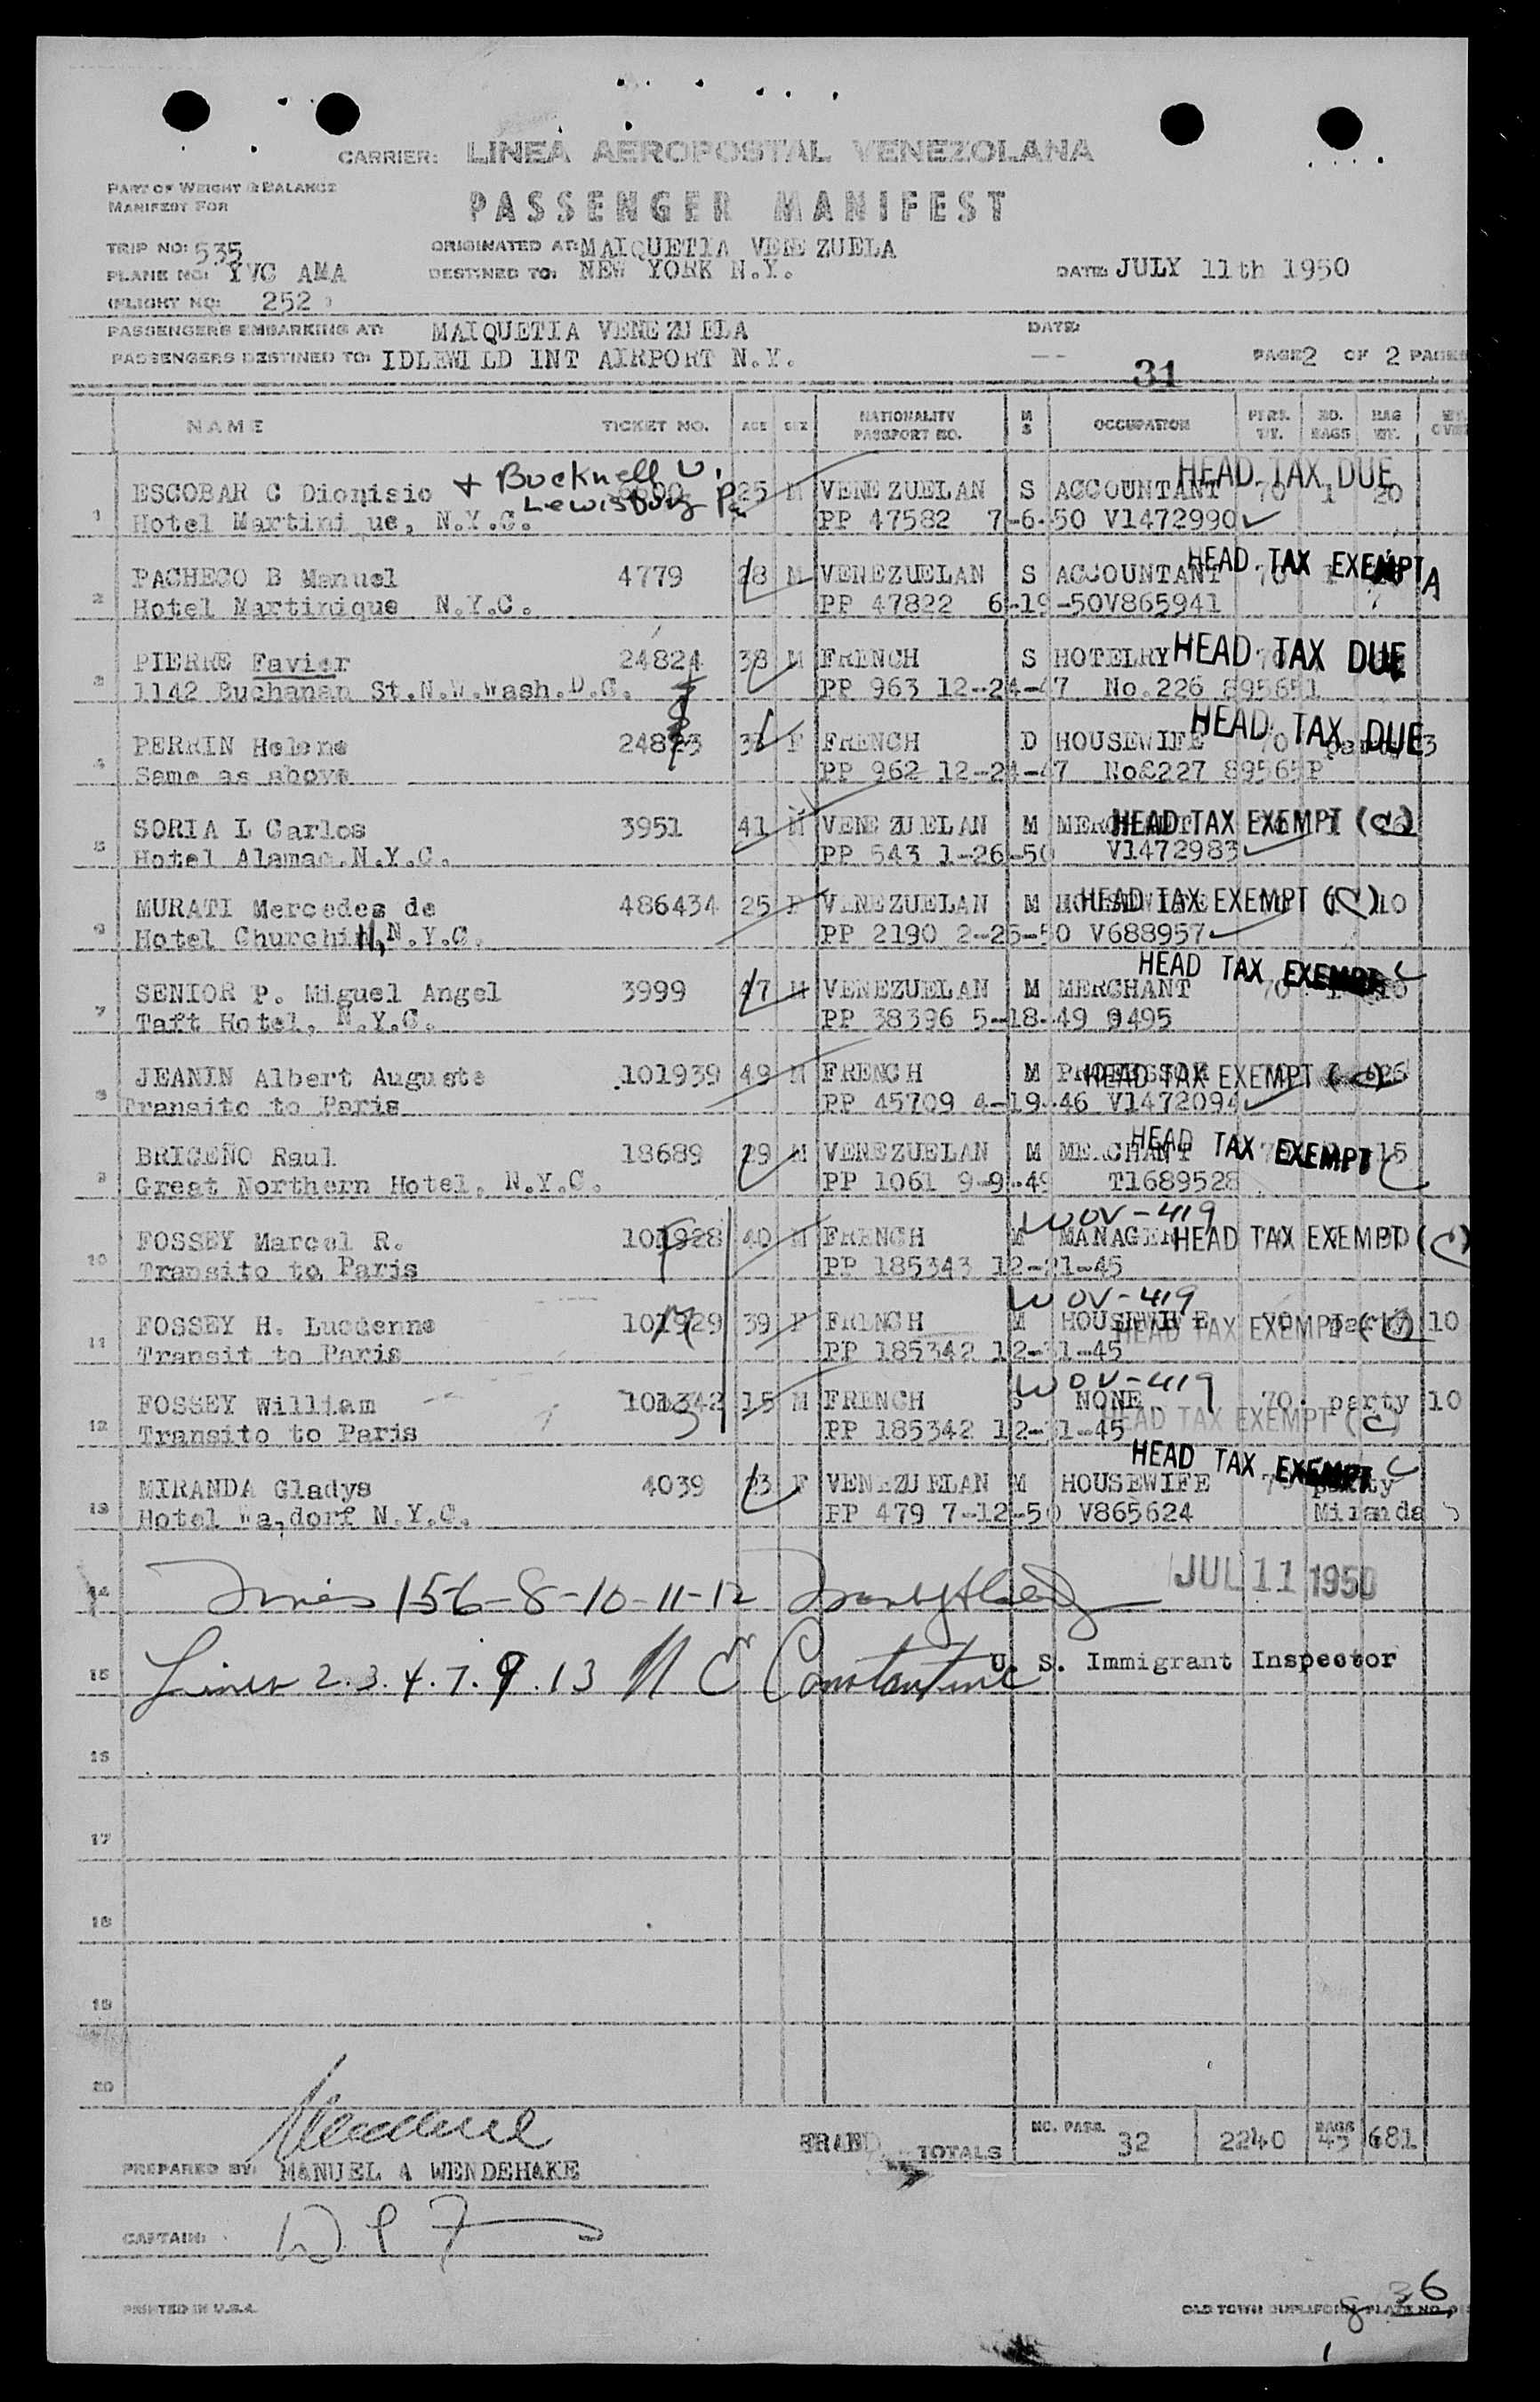 CARRIER: LINEA AEROPOSTAL VENEZOLANA
PART OF WEIGHT & BALANCE
MANIFEST FOR
PASSENGER MANIFEST
TRIP NO: 535 ORIGINATED AT: MAIQUETIA VENEZUELA
PLANE NO: YVC AMA DESTINED TO: NEW YORK N.Y. DATE: JULY 11th 1950
(FLIGHT NO: 252 )
PASSENGERS EMBARKING AT: MAIQUETIA VENEZUELA DATE:
PASSENGERS DESTINED TO: IDLEWILD INT AIRPORT N.Y. -- 31 PAGE 2 OF 2 PAGES
NAME TICKET NO. AGE SEX NATIONALITY PASSPORT NO. M S OCCUPATION PERS. WT. NO. BAGS BAG WT.
+ Bucknell U. HEAD TAX DUE
ESCOBAR C Dionisio 25 M VENEZUELAN S ACCOUNTANT 70 1 20
1 Hotel Martini ue, N.Y.C. Lewisburg Pa PP 47582 7-6-50 V1472990
HEAD TAX EXEMPT A
PACHECO B Manuel 4779 28 M VENEZUELAN S ACCOUNTANT 70 1
2 Hotel Martinique N.Y.C. PP 47822 6-19-50V865941
PIERRE Favier 24824 38 M FRENCH S HOTELRY HEAD TAX DUE
3 1142 Buchanan St.N.W.Wash.D.C. PP 963 12-24-47 No.226 895651
HEAD TAX DUE
PERRIN Helene 24823 F FRENCH D HOUSEWIFE 70
4 Same as above PP 962 12-24-47 89565P
SORIA L Carlos 3951 41 M VENEZUELAN M MERCHANT HEAD TAX EXEMPT (C)
5 Hotel Alamac.N.Y.C. PP 543 1-26-50 V1472983
MURATI Mercedes de 486434 25 F VENEZUELAN M HOUSEWIFE HEAD TAX EXEMPT (C) 10
6 Hotel Churchill, N.Y.C. PP 2190 2-25-50 V688957
HEAD TAX EXEMPT C
SENIOR P. Miguel Angel 3999 47 M VENEZUELAN M MERCHANT 70 1
7 Taft Hotel, N.Y.C. PP 38396 5-18-49 9495
JEANIN Albert Auguste 101939 49 M FRENCH M PROFESSOR HEAD TAX EXEMPT (C)
8 Transito to Paris PP 45709 4-19-46 V1472094
HEAD TAX EXEMPT C
BRICEÑO Raul 18689 29 M VENEZUELAN M MERCHANT 15
9 Great Northern Hotel, N.Y.C. PP 1061 9-9-49 T1689528
WOV-419
FOSSEY Marcel R. 101928 40 M FRENCH M MANAGER HEAD TAX EXEMPT (C)
10 Transito to Paris PP 185343 12-21-45
WOV-419
FOSSEY H. Lucienne 101929 39 F FRENCH M HOUSEWIFE 70 party 10
HEAD TAX EXEMPT (C)
11 Transit to Paris PP 185342 12-31-45
WOV-419
FOSSEY William 101342 15 M FRENCH S NONE 70. party 10
12 Transito to Paris PP 185342 12-31-45 HEAD TAX EXEMPT (C)
HEAD TAX EXEMPT C
MIRANDA Gladys 4039 23 F VENEZUELAN M HOUSEWIFE 70 party
13 Hotel Wa,dorf N.Y.C. PP 479 7-12-50 V865624 Miranda
JUL 11 1950
14 Lines 156-8-10-11-12
U. S. Immigrant Inspector
15 Lines 2.3.4.7.9.13 N C Constantine
16
17
18
19
20
GRAND TOTALS NO. PASS. 32 2240 BAGS 43 681
PREPARED BY: MANUEL A WENDEHAKE
CAPTAIN:
PRINTED IN U.S.A. 36
OLD TOWN DUPLIFORM PLATE NO.